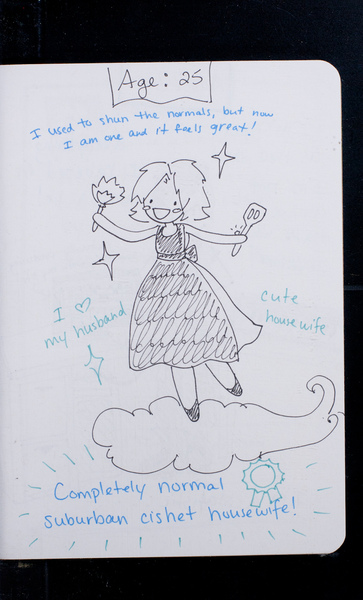 Age: 25
I used to shun the normals, but now
I am one and it feels great!
I ♡
my husband
cute
housewife
Completely normal
suburban cishet housewife!